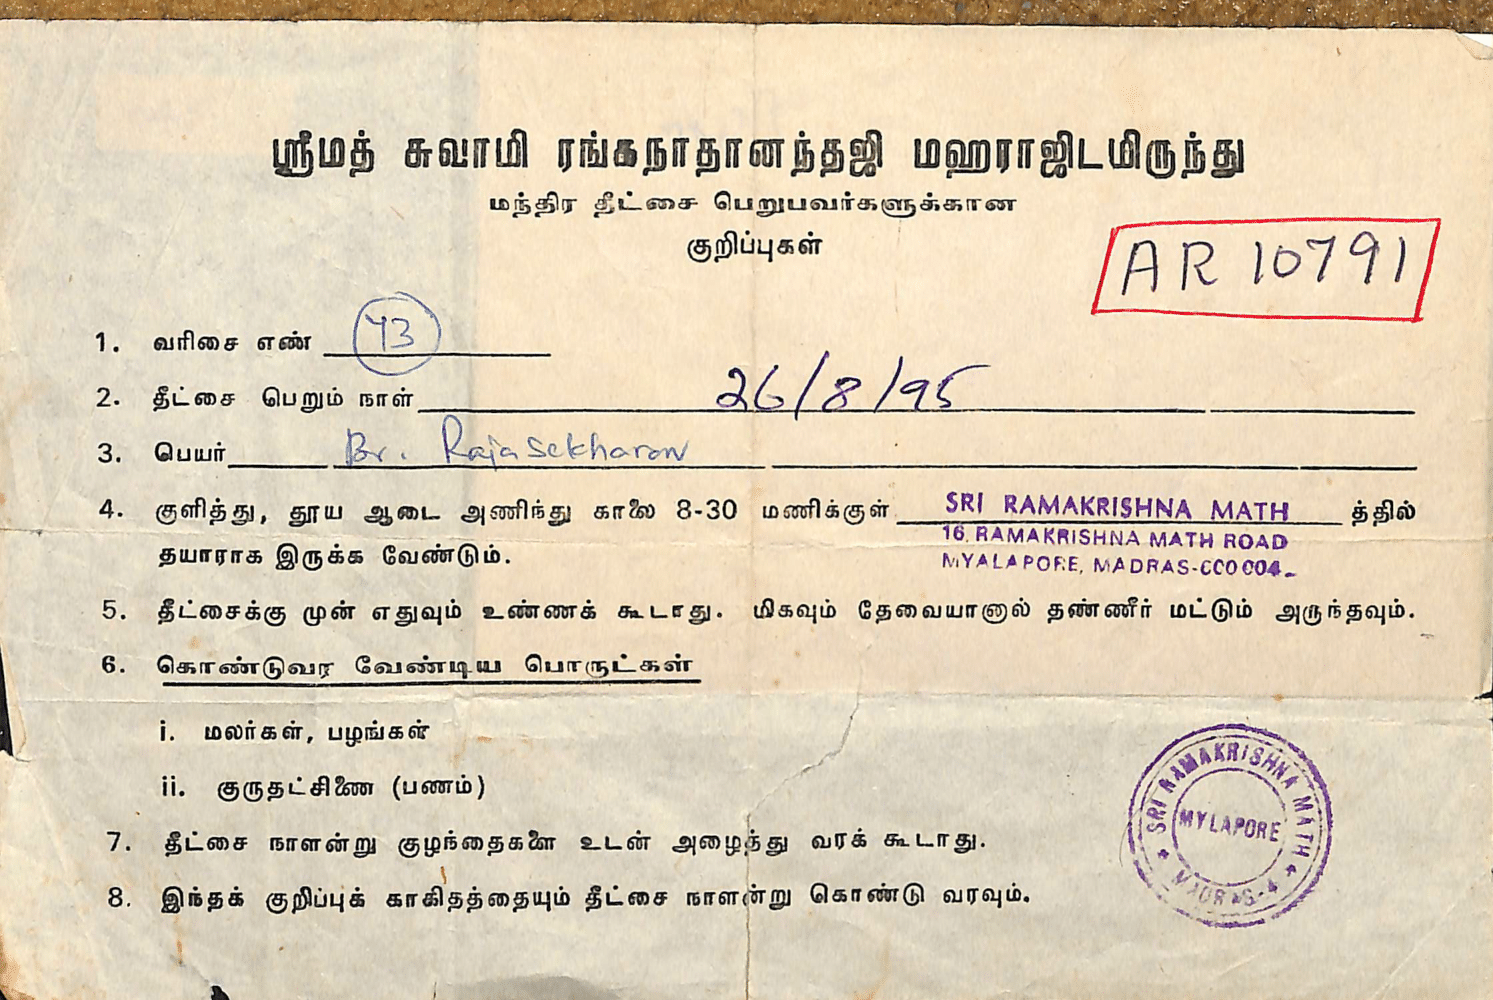 ஸ்ரீமத் சுவாமி ரங்கநாதானந்தஜி மஹராஜிடமிருந்து
மந்திர தீட்சை பெறுபவர்களுக்கான
குறிப்புகள்
AR 10791
1. வரிசை எண் 43
2. தீட்சை பெறும் நாள் 26/8/95
3. பெயர் Br. Rajasekharan
4. குளித்து, தூய ஆடை அணிந்து காலை 8-30 மணிக்குள் SRI RAMAKRISHNA MATH த்தில்
16, RAMAKRISHNA MATH ROAD
MYALAPORE, MADRAS-600 004.
தயாராக இருக்க வேண்டும்.
5. தீட்சைக்கு முன் எதுவும் உண்ணக் கூடாது. மிகவும் தேவையானால் தண்ணீர் மட்டும் அருந்தவும்.
6. கொண்டுவர வேண்டிய பொருட்கள்
i. மலர்கள், பழங்கள்
ii. குருதட்சிணை (பணம்)
7. தீட்சை நாளன்று குழந்தைகளை உடன் அழைத்து வரக் கூடாது.
8. இந்தக் குறிப்புக் காகிதத்தையும் தீட்சை நாளன்று கொண்டு வரவும்.
SRI RAMAKRISHNA MATH
MYLAPORE
MADRAS-4